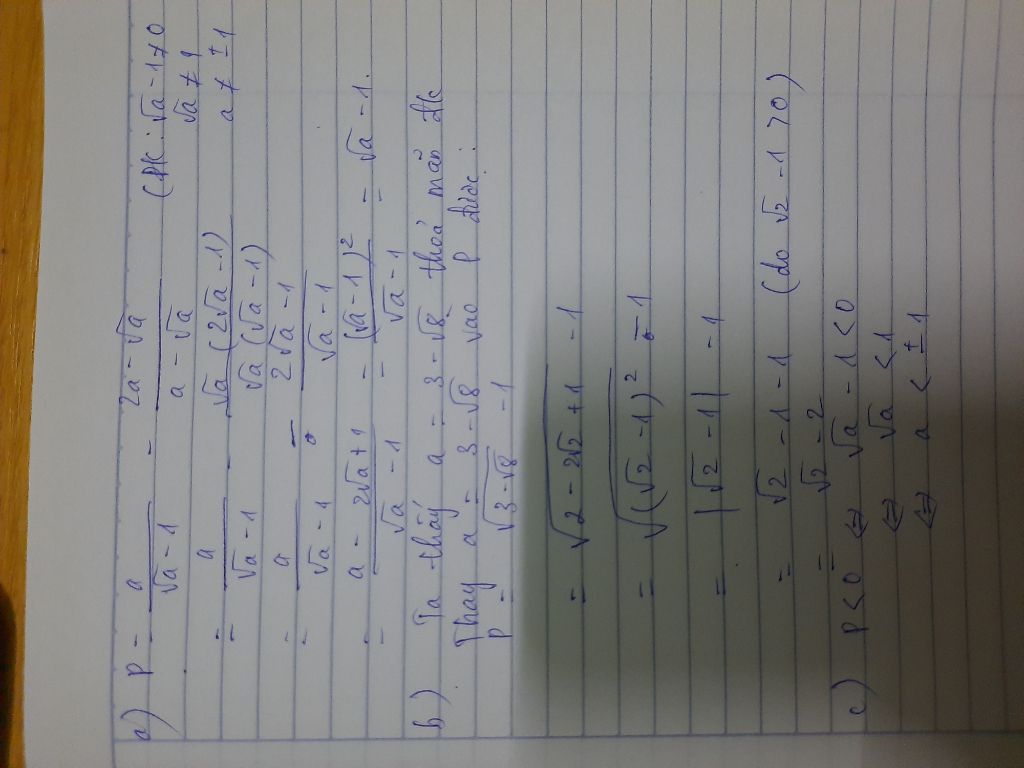 a) P = a/(√a - 1) - (2a - √a)/(a - √a) (ĐK: √a - 1 ≠ 0
√a ≠ 1
= a/(√a - 1) - √a(2√a - 1)/(√a(√a - 1)) a ≠ ±1
= a/(√a - 1) - (2√a - 1)/(√a - 1)
= (a - 2√a + 1)/(√a - 1) = (√a - 1)²/(√a - 1) = √a - 1.
b) Ta thấy a = 3 - √8 thoả mãn ĐK
Thay a = 3 - √8 vào P được:
P = √(3 - √8) - 1
= √(2 - 2√2 + 1) - 1
= √((√2 - 1)²) - 1
= |√2 - 1| - 1
= √2 - 1 - 1 (do √2 - 1 > 0)
= √2 - 2
c) P < 0 ⇔ √a - 1 < 0
⇔ √a < 1
⇔ a < ±1